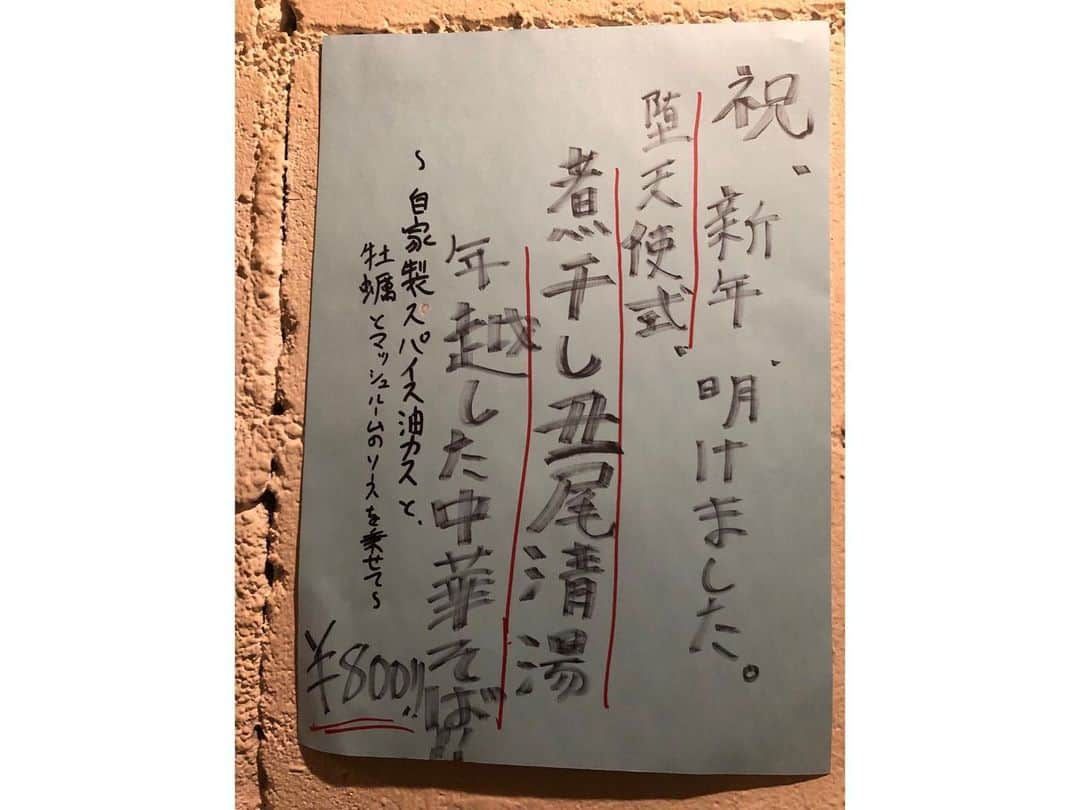 祝、新年、明けました。
堕天使式、
煮干し丑尾清湯
年越した中華そば!!
〜自家製スパイス油カスと、
牡蠣とマッシュルームのソースを乗せて〜
¥800!!